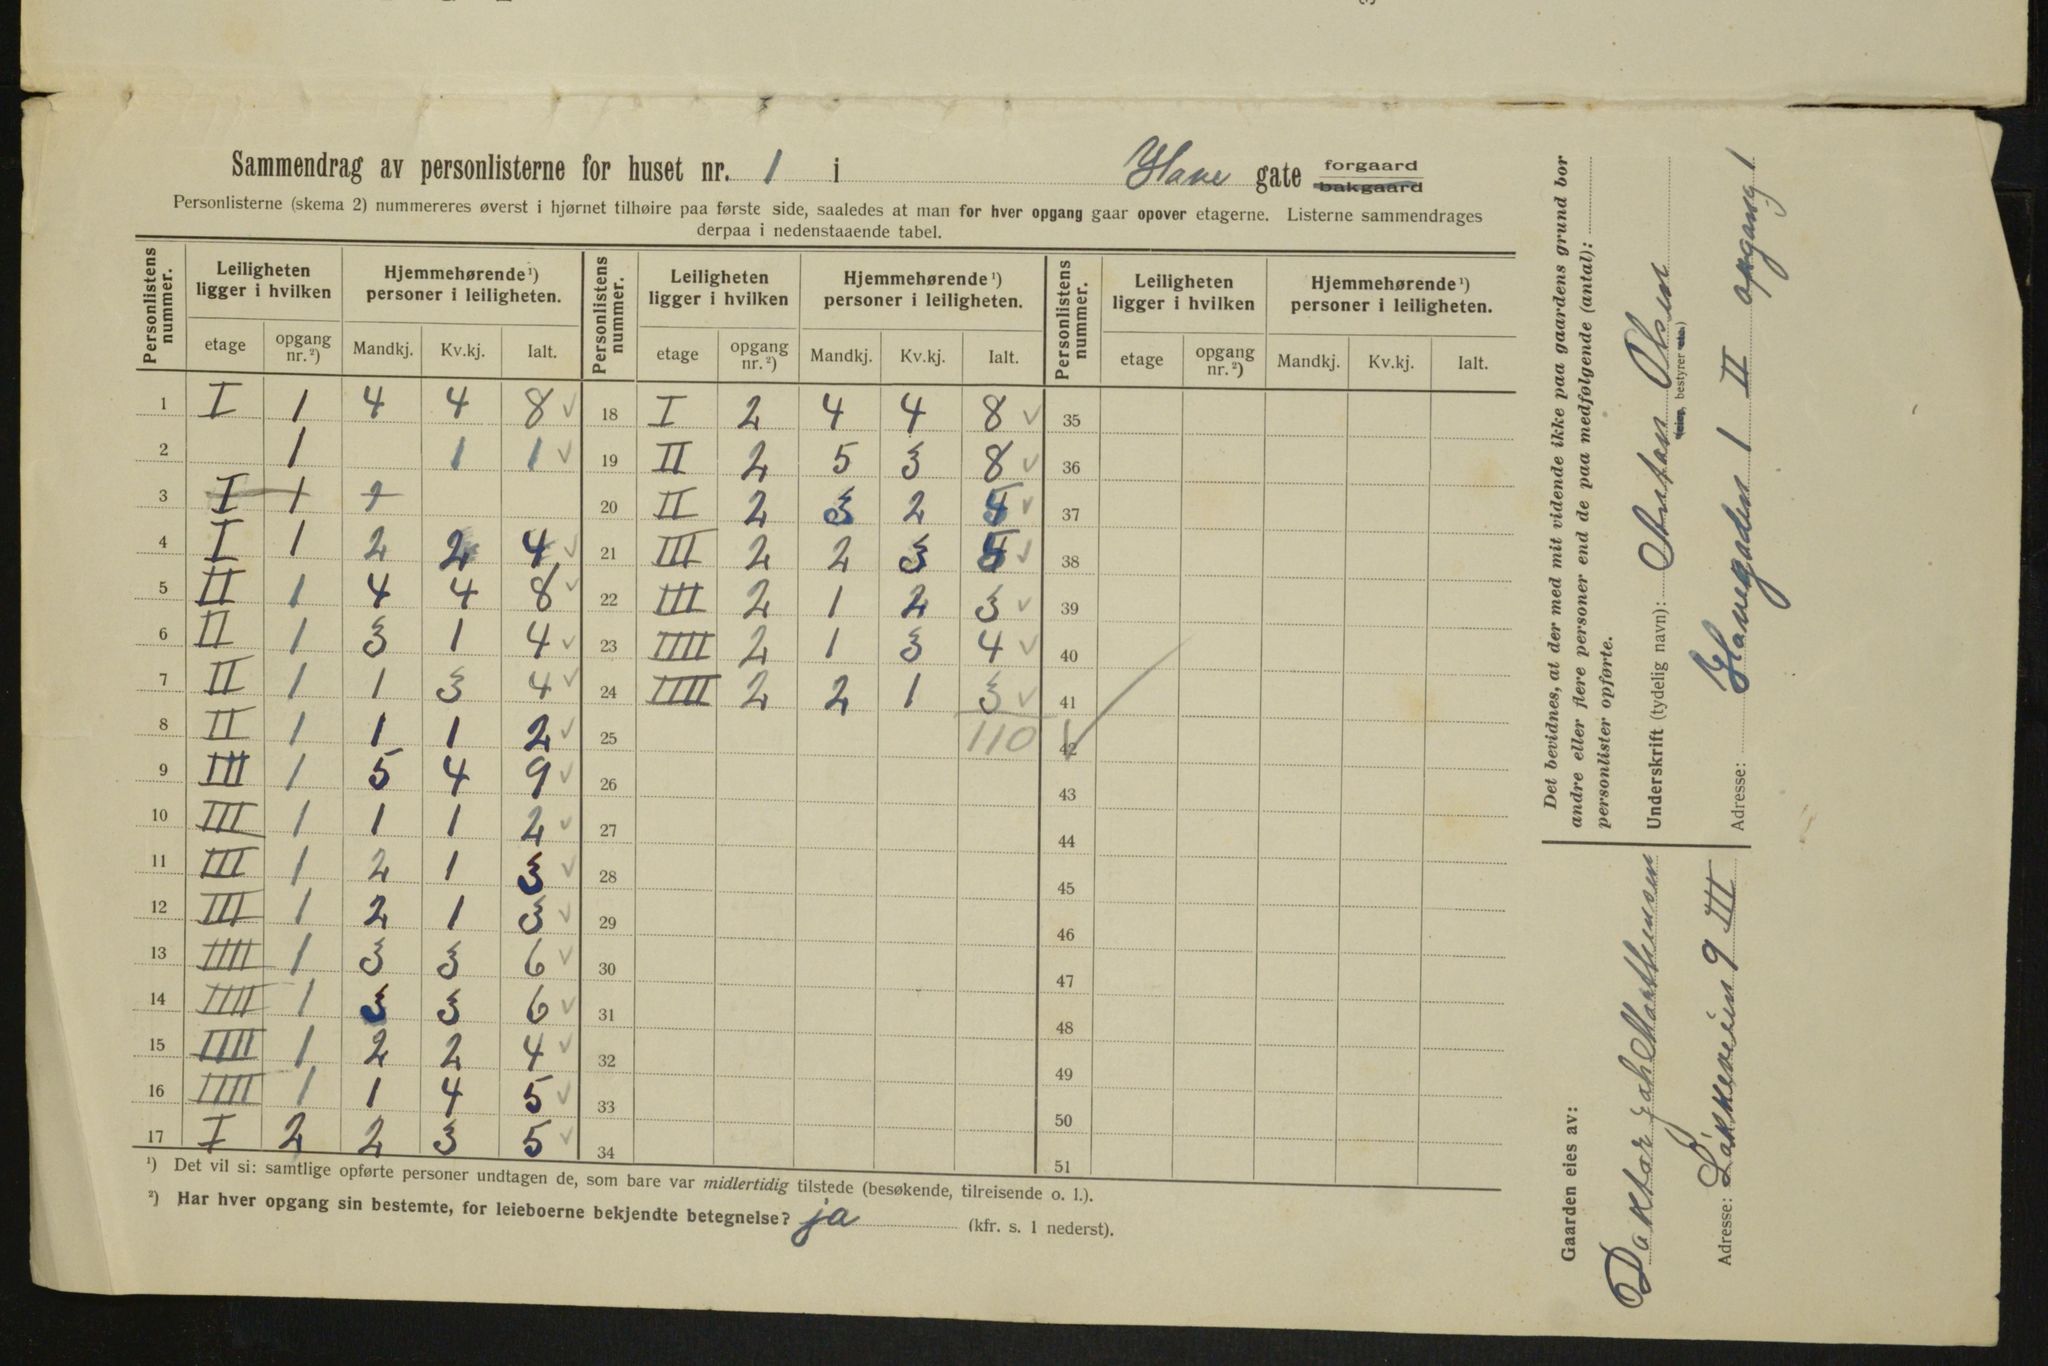 Sammendrag av personlisterne for huset nr. 1 i Have gate forgaard bakgaard
Personlisterne (skema 2) nummereres øverst i hjørnet tilhøire paa første side, saaledes at man for hver opgang gaar opover etagerne. Listerne sammendrages
derpaa i nedenstaaende tabel.
Personlistens nummer. Leiligheten ligger i hvilken Hjemmehørende ¹) personer i leiligheten. Personlistens nummer. Leiligheten ligger i hvilken Hjemmehørende ¹) personer i leiligheten. Personlistens nummer. Leiligheten ligger i hvilken Hjemmehørende ¹) personer i leiligheten.
etage opgang nr. ²) Mandkj. Kv.kj. Ialt. etage opgang nr. ²) Mandkj. Kv.kj. Ialt. etage opgang nr. ²) Mandkj. Kv.kj. Ialt.
1 I 1 4 4 8 ✓ 18 I 2 4 4 8 ✓ 35
2 1 1 1 ✓ 19 II 2 5 3 8 ✓ 36
3 I 1 1 20 II 2 3 2 5 ✓ 37
4 I 1 2 2 4 ✓ 21 III 2 2 3 5 ✓ 38
5 II 1 4 4 8 ✓ 22 III 2 1 2 3 ✓ 39
6 II 1 3 1 4 ✓ 23 IIII 2 1 3 4 ✓ 40
7 II 1 1 3 4 ✓ 24 IIII 2 2 1 3 ✓ 41
8 II 1 1 1 2 ✓ 25 110 ✓ 42
9 III 1 5 4 9 ✓ 26 43
10 III 1 1 1 2 ✓ 27 44
11 III 1 2 1 3 ✓ 28 45
12 III 1 2 1 3 ✓ 29 46
13 IIII 1 3 3 6 ✓ 30 47
14 IIII 1 3 3 6 ✓ 31 48
15 IIII 1 2 2 4 ✓ 32 49
16 IIII 1 1 4 5 ✓ 33 50
17 I 2 2 3 5 ✓ 34 51
¹) Det vil si: samtlige opførte personer undtagen de, som bare var midlertidig tilstede (besøkende, tilreisende o. l.).
²) Har hver opgang sin bestemte, for leieboerne bekjendte betegnelse? ja (kfr. s. 1 nederst).
Det bevidnes, at der med mit vidende ikke paa gaardens grund bor
andre eller flere personer end de paa medfølgende (antal):
personlister opførte.
Underskrift (tydelig navn): Anton Olsen
bestyrer
Adresse: Havegaden 1 II opgang 1
Gaarden eies av:
Doktor Joh Marthinsen
Adresse: Løkkeveien 9 III